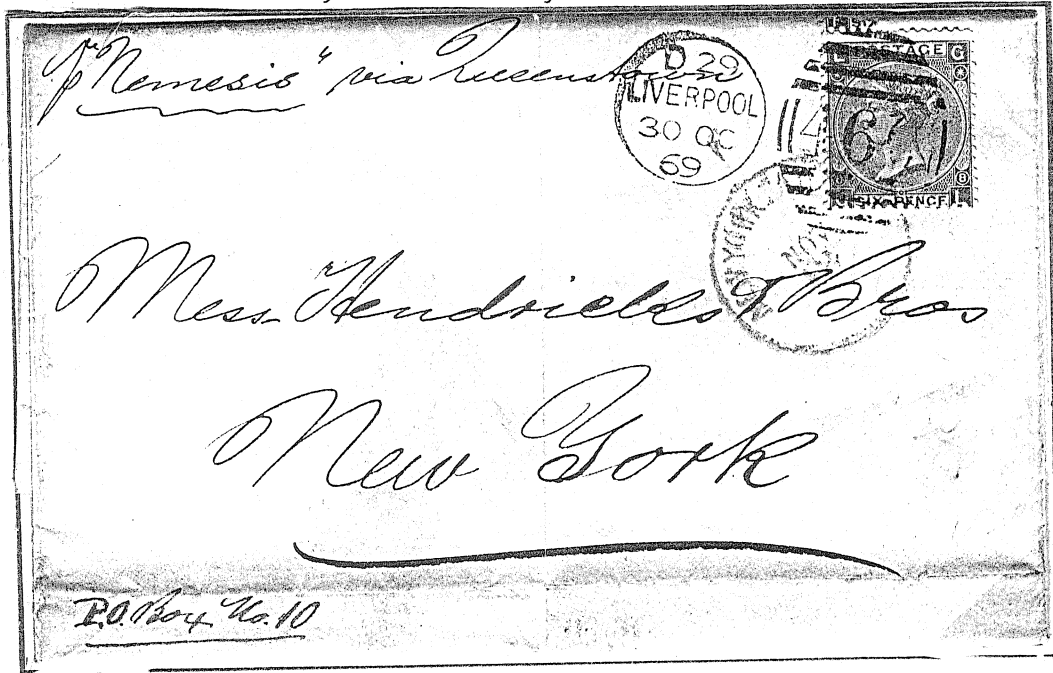 pr "Nemesis" via Queenstown
D 29
LIVERPOOL
30 OC
69
POSTAGE
G
466
SIX PENCE
NEW YORK
NOV
Mess Hendricks & Bros
New York
P.O. Box No. 10